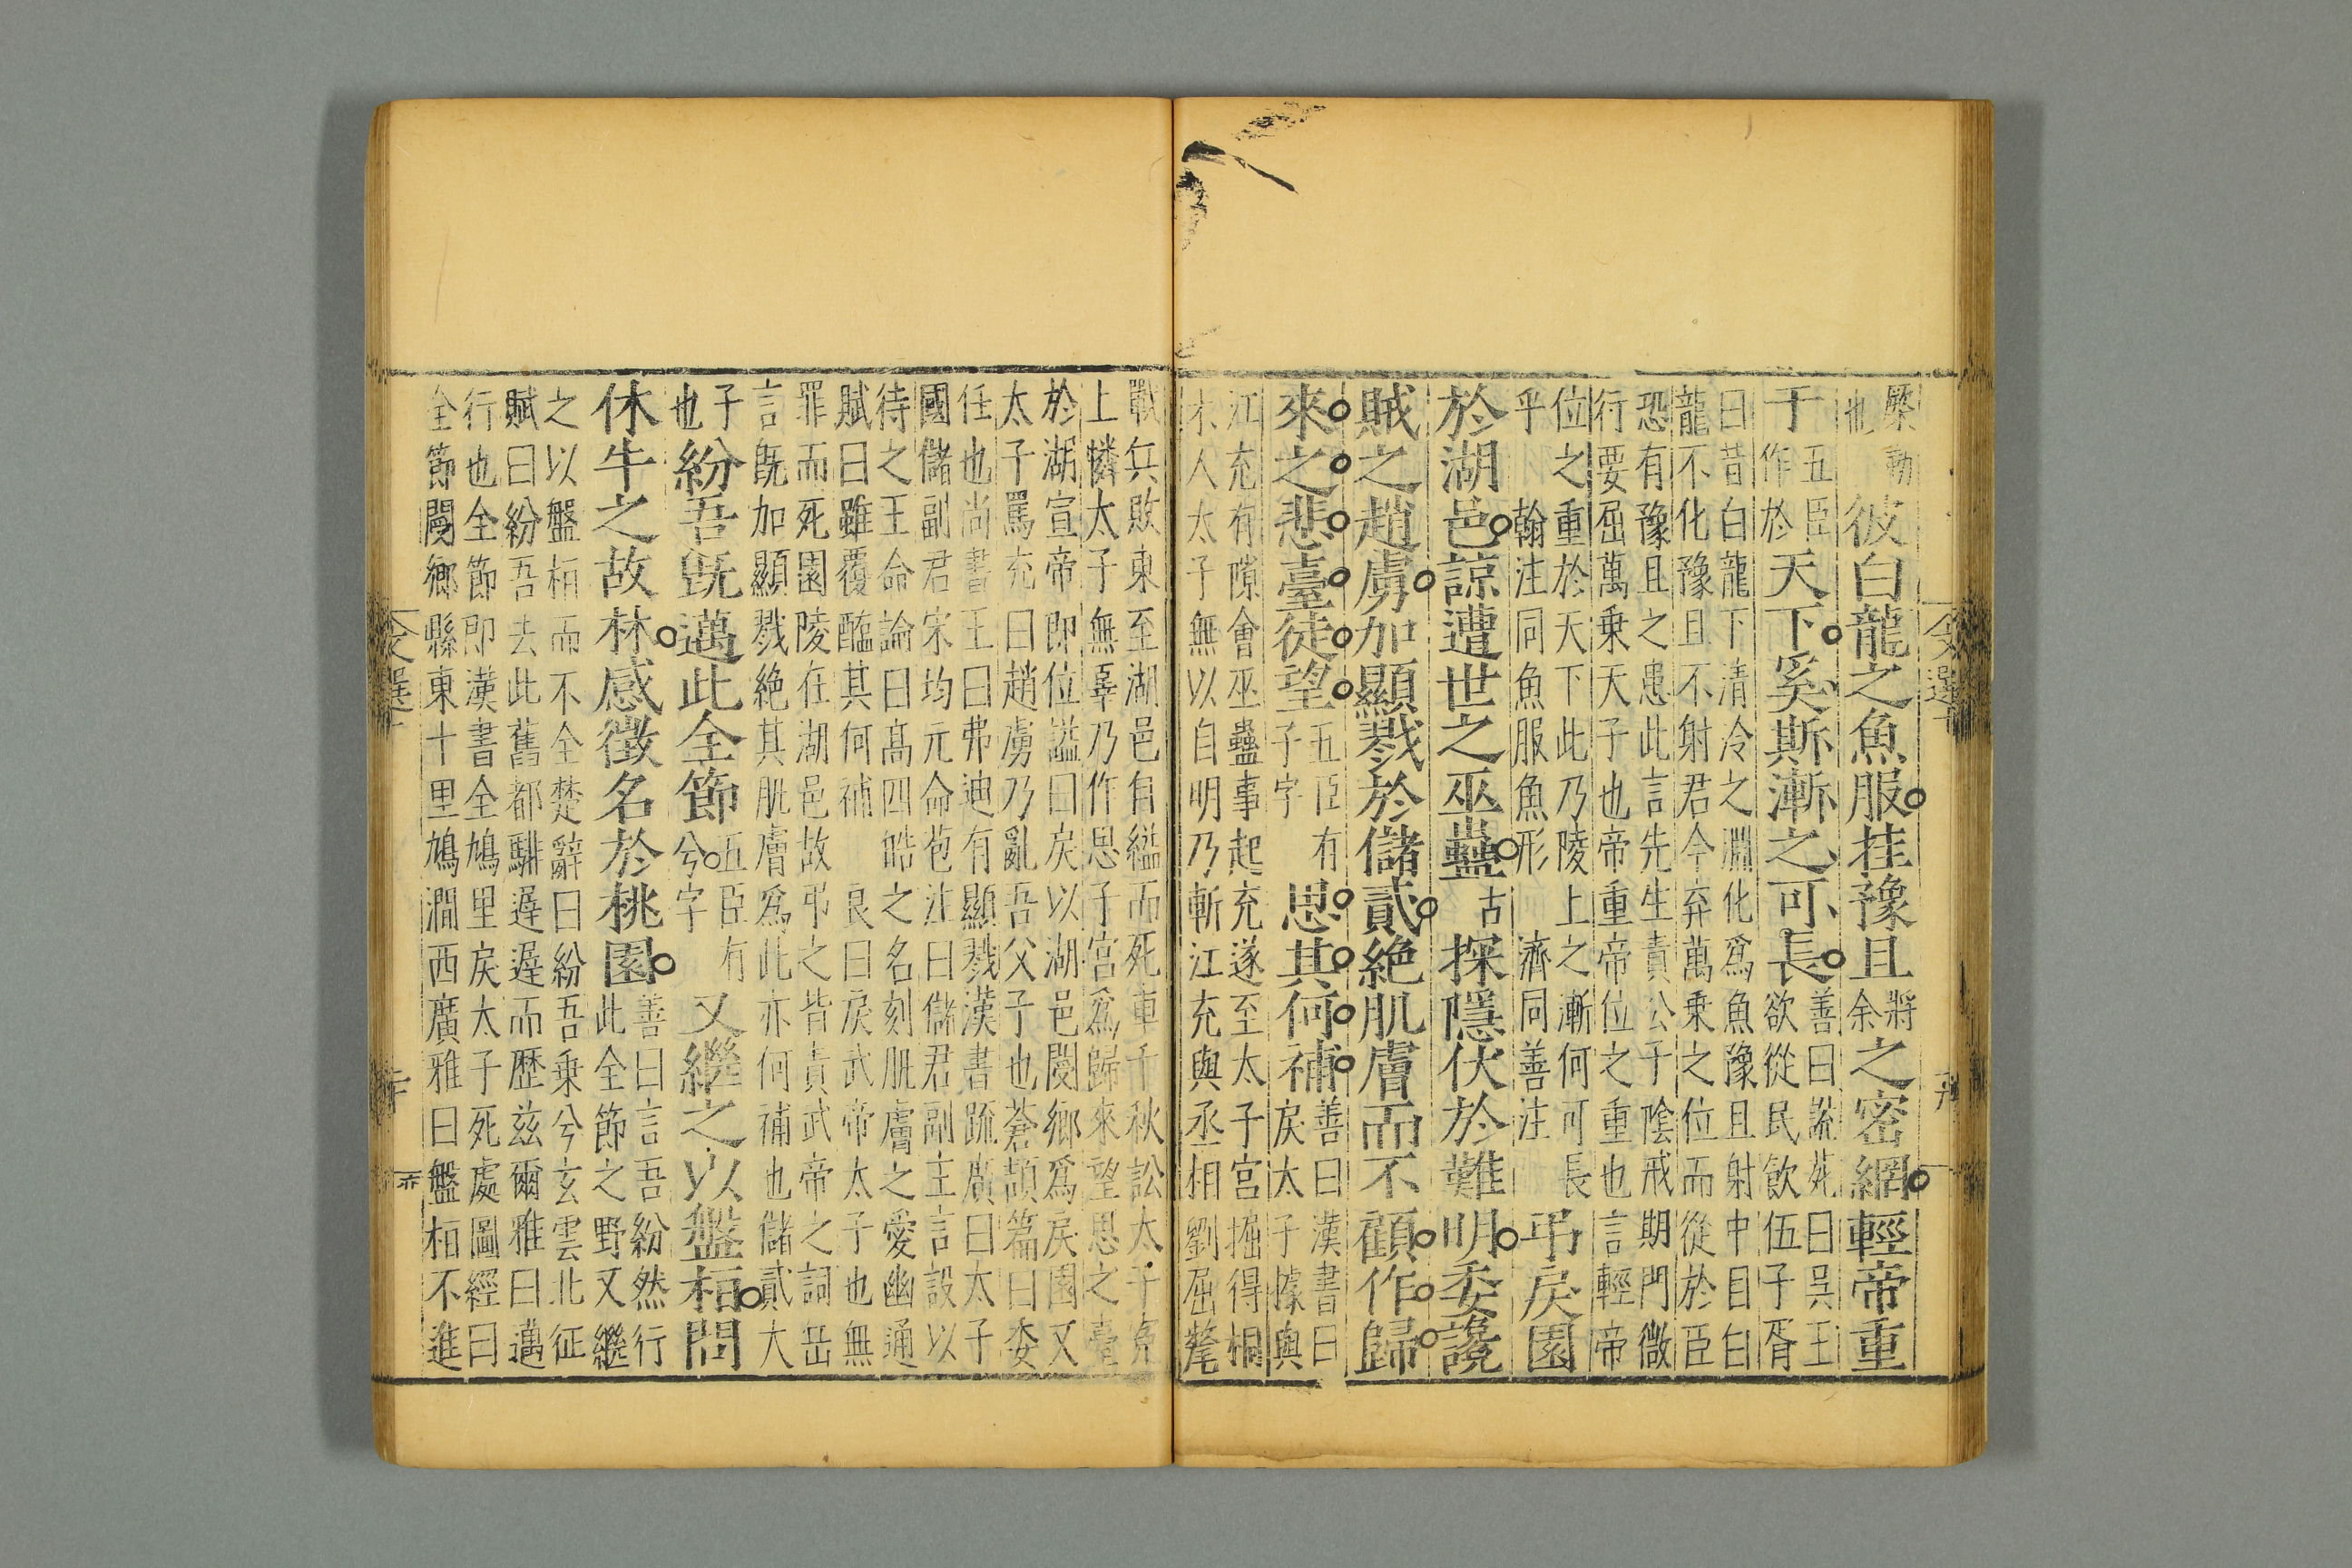 縣動
也
彼白龍之魚服挂豫且
將
余
之密網輕帝重
于
五臣
作於
天下奚斯漸之可長
善曰說苑曰吳王
欲從民飲伍子胥
曰昔白龍下清冷之淵化爲魚豫且射中目白
龍不化豫且不射君今弃萬乗之位而從於臣
恐有豫且之患此言先生責公于陰戒期門微
行要屈萬乗天子也帝重帝位之重也言輕帝
位之重於天下此乃陵上之漸何可長
乎 翰注同魚服魚形 濟同善注
弔戾園
於湖邑諒遭世之巫蠱
古
探隱伏於難明委讒
賊之趙虜加顯戮於儲貳絶肌膚而不顧作歸
來之悲臺徒望
五臣有
子字
思其何補
善曰漢書曰
戾太子據與
江充有隙會巫蠱事起充遂至太子宮掘得桐
木人太子無以自明乃斬江充與丞相劉屈氂
戰兵敗東至湖邑自縊而死車千秋訟太子寃
上憐太子無辜乃作思子宮爲歸來望思之臺
於湖宣帝即位謚曰戾以湖邑閿鄉爲戾園又
太子罵充曰趙虜乃亂吾父子也蒼頡篇曰委
任也尚書王曰弗迪有顯戮漢書䟽廣曰太子
國儲副君宋均元命苞注曰儲君副主言設以
待之王命論曰髙四皓之名刻肌膚之愛幽通
賦曰雖覆醢其何補 良曰戾武帝太子也無
罪而死園陵在湖邑故弔之皆責武帝之詞岳
言旣加顯戮絶其肌膚爲此亦何補也儲貳大
子
也
紛吾旣邁此全節
五臣有
兮字
又繼之以盤桓問
休牛之故林感徵名於桃園
善曰言吾紛然行
此全節之野又繼
之以盤桓而不全楚辭曰紛吾乗兮玄雲北征
賦曰紛吾去此舊都騑遲遲而歷兹爾雅曰邁
行也全節即漢書全鳩里戾太子死處圖經曰
全節閿鄉縣東十里鳩澗西廣雅曰盤桓不進
文選十